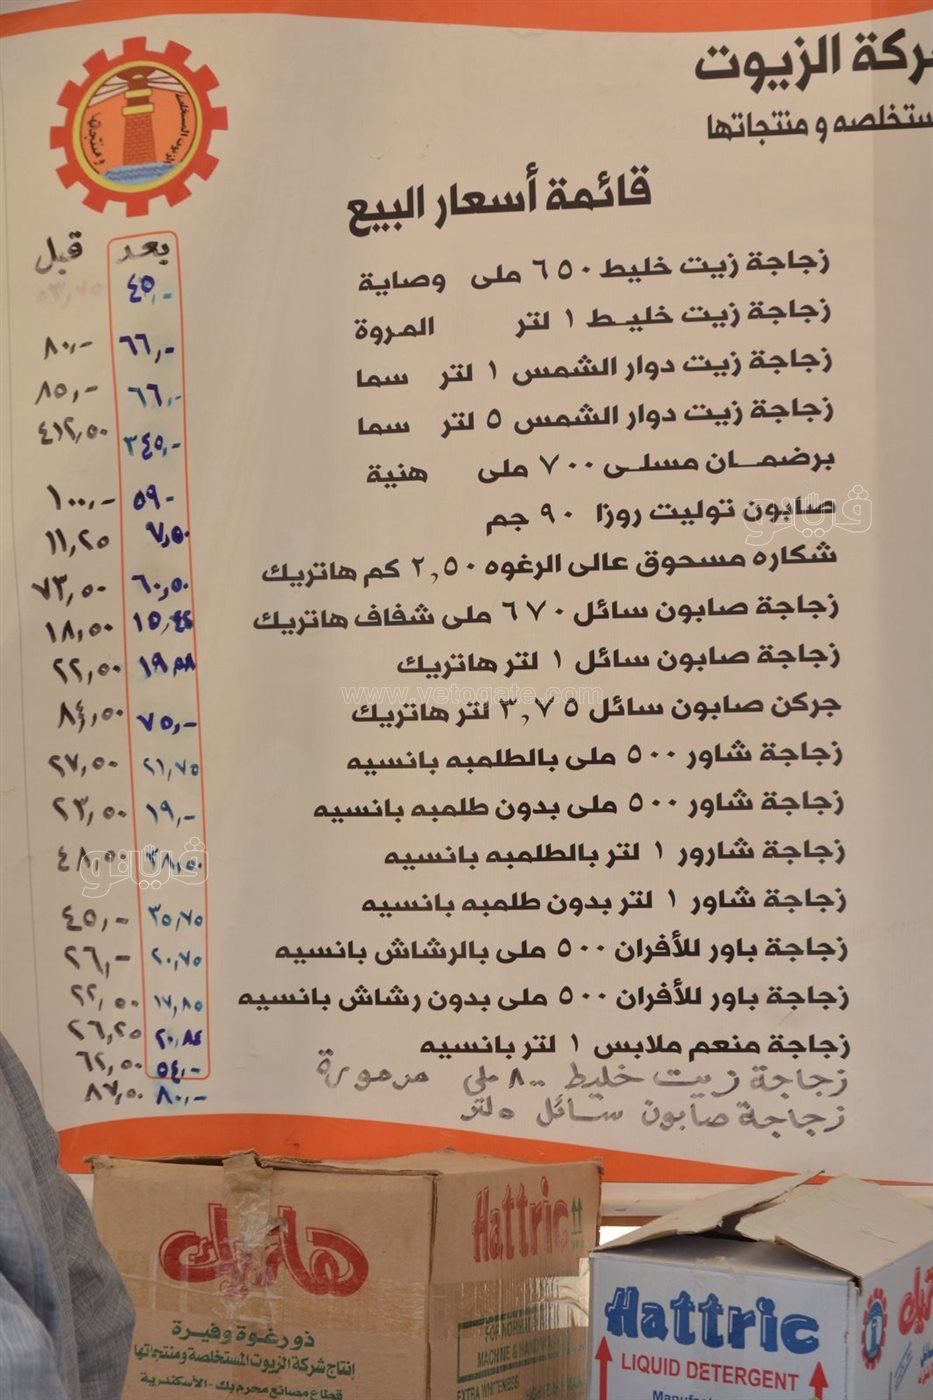 ركة الزيوت
ستخلصه و منتجاتها
قائمة أسعار البيع
بعد قبل
زجاجة زيت خليط ٦٥٠ ملى وصاية ٤٥,- ٥٣,٧٥
زجاجة زيت خليط ١ لتر المروة ٦٦,- ٨٠,-
زجاجة زيت دوار الشمس ١ لتر سما ٦٦,- ٨٥,-
زجاجة زيت دوار الشمس ٥ لتر سما ٣٤٥,- ٤١٢,٥٠
برضمان مسلى ٧٠٠ ملى هنية ٥٩- ١٠٠,-
صابون توليت روزا ٩٠ جم ٧,٥٠ ١١,٢٥
شكاره مسحوق عالى الرغوه ٢,٥٠ كم هاتريك ٦٠,٥٠ ٧٣,٥٠
زجاجة صابون سائل ٦٧٠ ملى شفاف هاتريك ١٨,٥٠
زجاجة صابون سائل ١ لتر هاتريك ٢٢,٥٠
جركن صابون سائل ٣,٧٥ لتر هاتريك ٧٥,- ٨٤,٥٠
زجاجة شاور ٥٠٠ ملى بالطلمبه بانسيه ٢١,٧٥ ٢٧,٥٠
زجاجة شاور ٥٠٠ ملى بدون طلمبه بانسيه ١٩,- ٢٣,٥٠
زجاجة شارور ١ لتر بالطلمبه بانسيه ٣٨,٥٠ ٤٨,٥٠
زجاجة شاور ١ لتر بدون طلمبه بانسيه ٣٥,٧٥ ٤٥,-
زجاجة باور للأفران ٥٠٠ ملى بالرشاش بانسيه ٢٠,٧٥ ٢٦,-
زجاجة باور للأفران ٥٠٠ ملى بدون رشاش بانسيه ١٧,٨٥ ٢٢,٥٠
زجاجة منعم ملابس ١ لتر بانسيه ٢٠,٨٤ ٢٦,٢٥
زجاجة زيت خليط ٨٠٠ ملي ٥٤,- ٦٢,٥٠
زجاجة صابون سائل ٥ لتر ٨٠,- ٨٧,٥٠
فيتو
www.vetogate.com
فيتو
هاتريك
Hattric
ذو رغوة وفيرة
إنتاج شركة الزيوت المستخلصة ومنتجاتها
قطاع مصانع محرم بك - الأسكندرية
FOR NORMAL
MACHINE & HAND WASH
EXTRA WHITENESS
Hattric
LIQUID DETERGENT